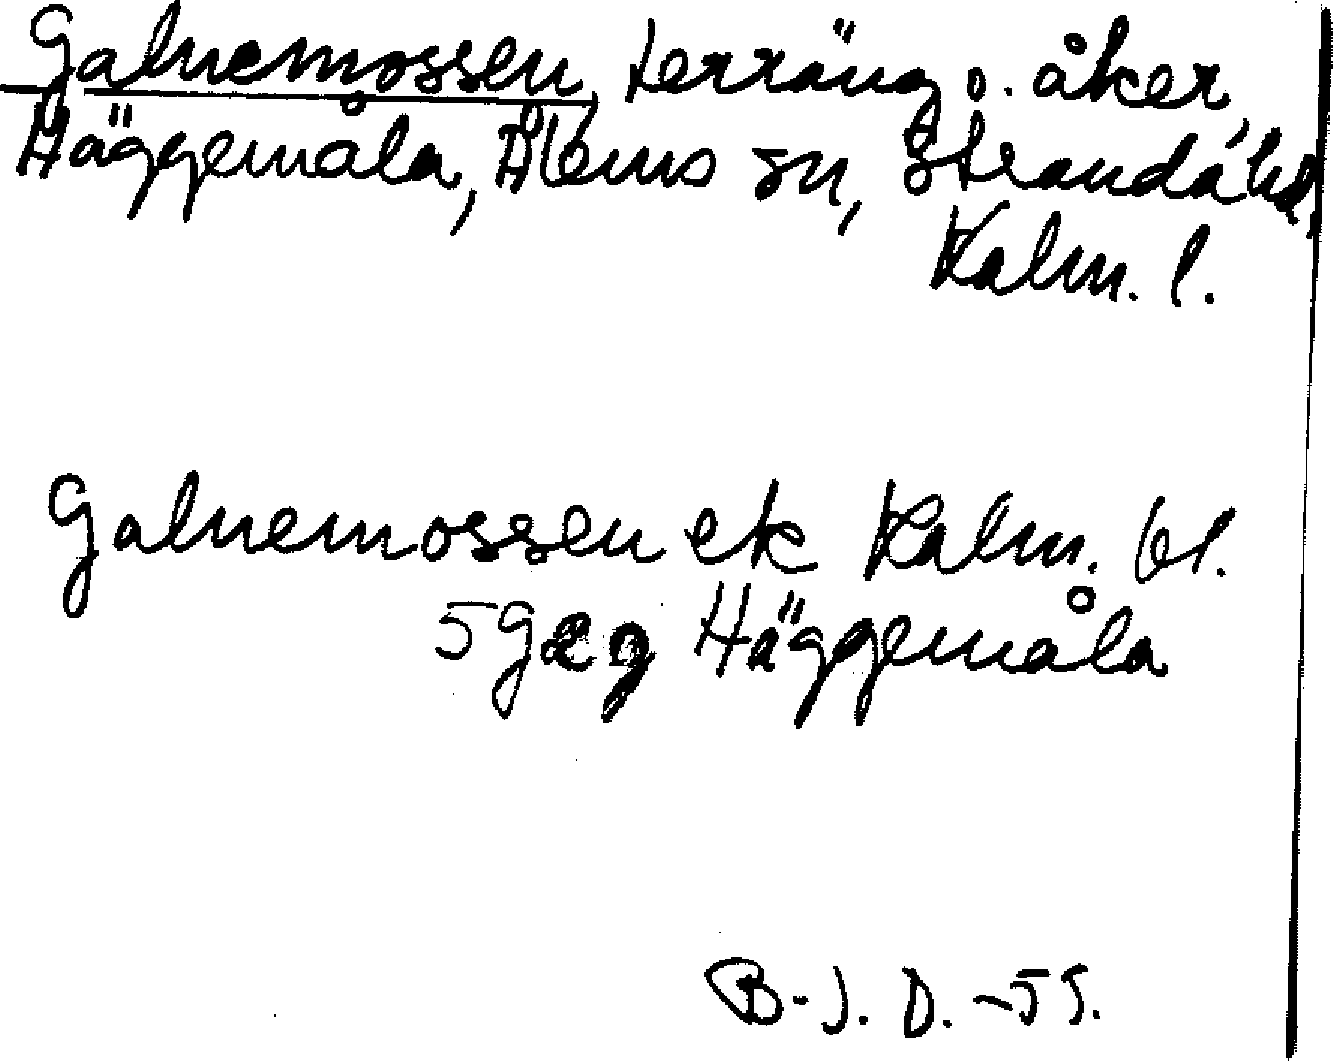 Galnemossen, terräng o. åker,
Häggemåla, Ålems sn, Stranda hd,
Kalm. l.
Galnemossen ek Kalm. bl.
5G2g Häggemåla
B-J. D. -55.